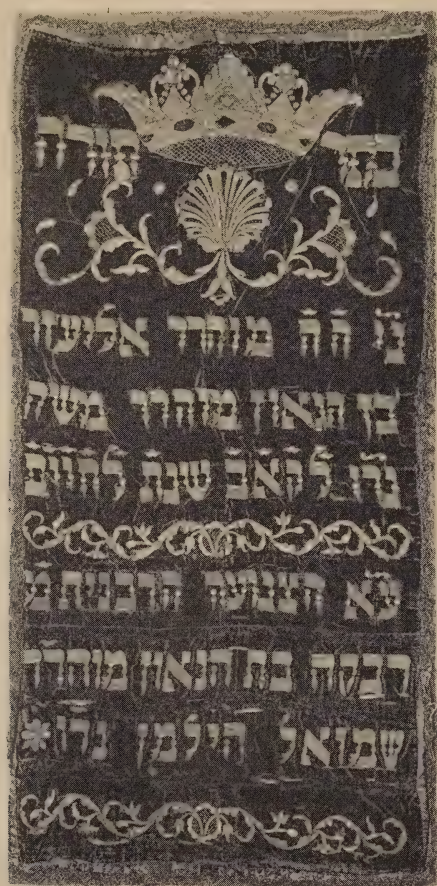 כתר תורה
נ' ה"ה מוהרר אליעזר
בן הגאון מוהרר משה
לק אב שנת לחיים
האשה הרבנית מ
רבקה בת הגאון מוהרר
שמואל הילמן נרו*